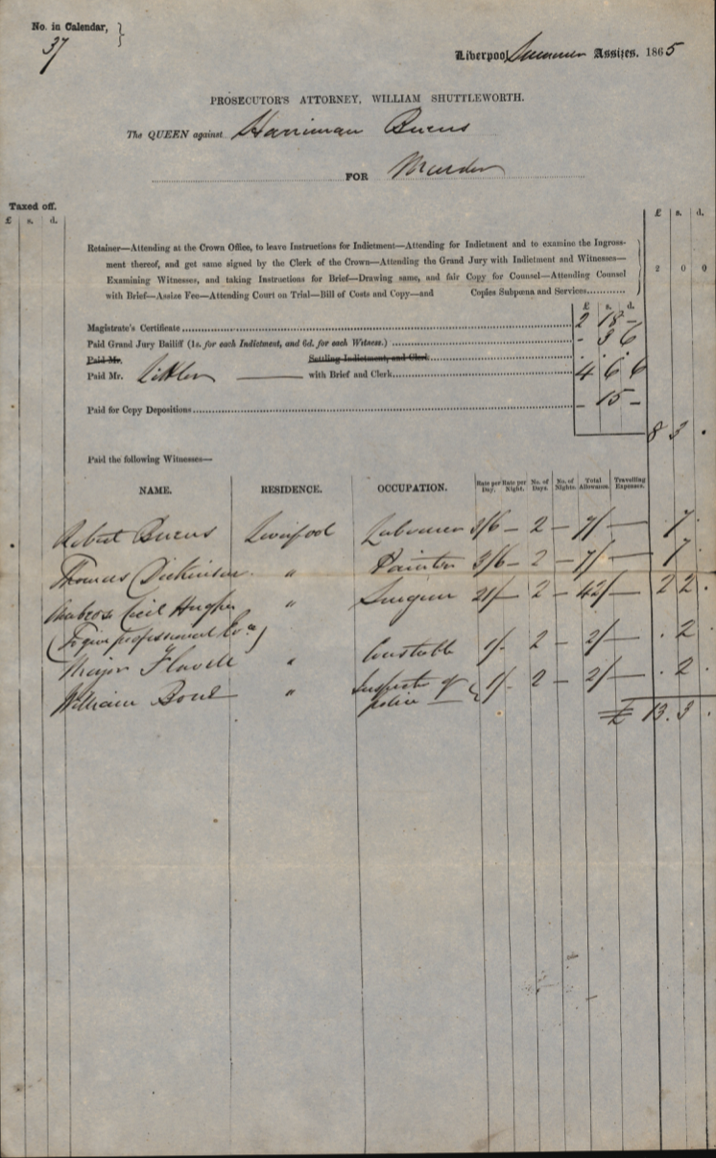 No. in Calendar, }
37
Liverpool Summer Assizes, 1865
PROSECUTOR'S ATTORNEY, WILLIAM SHUTTLEWORTH.
The QUEEN against Harriman Burns
FOR Murder
Taxed off.
£ s. d. £ s. d.
Retainer—Attending at the Crown Office, to leave Instructions for Indictment—Attending for Indictment and to examine the Ingross-
ment thereof, and get same signed by the Clerk of the Crown—Attending the Grand Jury with Indictment and Witnesses—
Examining Witnesses, and taking Instructions for Brief—Drawing same, and fair Copy for Counsel—Attending Counsel
with Brief—Assize Fee—Attending Court on Trial—Bill of Costs and Copy—and Copies Subpœna and Services............ 2 0 0
£ s. d.
Magistrate's Certificate 2 18 -
Paid Grand Jury Bailiff (1s. for each Indictment, and 6d. for each Witness.) - 3 6
Paid Mr. Settling Indictment, and Clerk . . .
Paid Mr. Littler —— with Brief and Clerk 4 6 6
Paid for Copy Depositions - 15 -
8 3 .
Paid the following Witnesses—
NAME. RESIDENCE. OCCUPATION. Rate per Day. Rate per Night. No. of Days. No. of Nights. Total Allowance. Travelling Expenses.
Robert Burns Liverpool Labourer 3/6 – 2 – 7/ — . 7 .
Thomas Dickinson " Painter 3/6 – 2 – 7/ — . 7 .
Ambrose Cecil Hughes " Surgeon 21/ – 2 – 42/ — 2 2 .
(To give professional Evce)
Major Flavell " Constable 1/- 2 – 2/ — . 2 .
William Bond " Inspector of police 1/- 2 – 2/ — . 2 .
£ 13 . 3 .